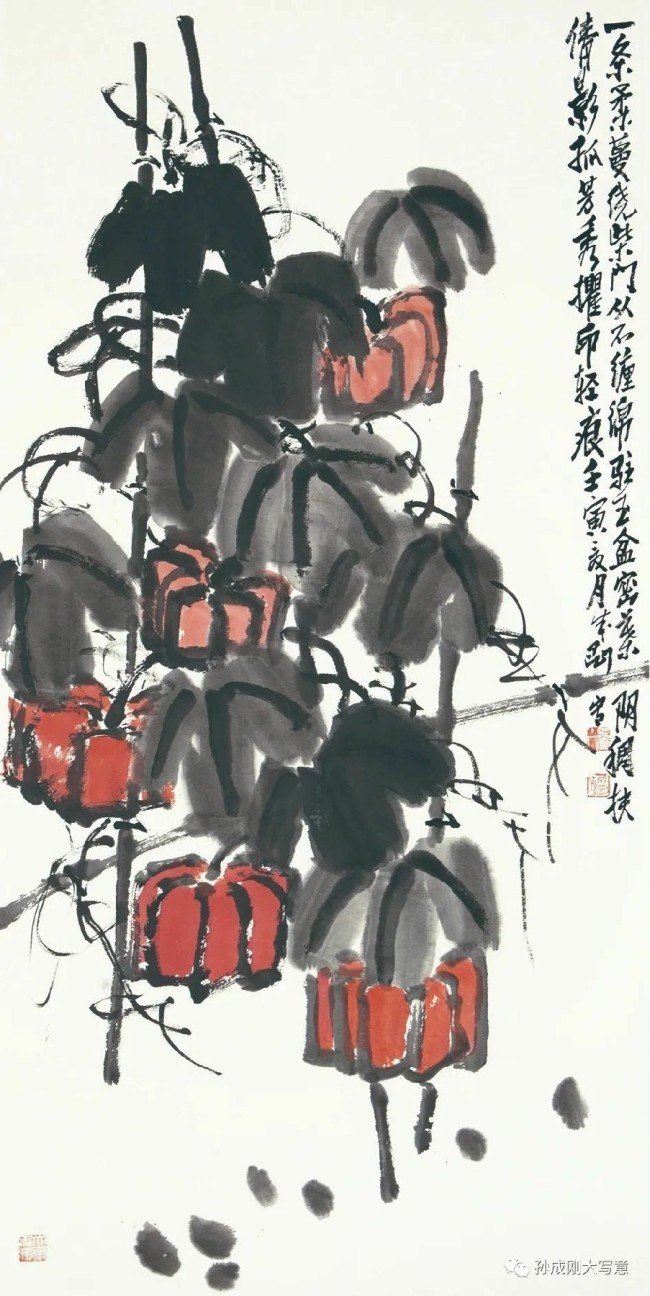 一条柔蔓绕柴门从不缠绵驻玉盆密葉阴稠扶
倩影孤芳秀擢印轻痕壬寅亥月成刚
孙成刚大写意